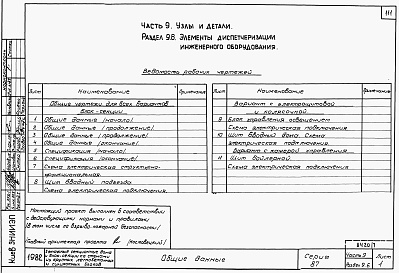 111
Часть 9. Узлы и детали.
Раздел 9.8. Элементы диспетчеризации
инженерного оборудования.
Ведомость рабочих чертежей
Лист Наименование Примечание
Общие чертежи для всех вариантов
блок-секции
1 Общие данные (начало)
2 Общие данные (продолжение)
3 Общие данные (продолжение)
4 Общие данные (окончание)
5 Спецификация (начало)
6 Спецификация (окончание)
7 Схема электрическая структурно-
функциональная.
8 Щит вводный подъезда
Схема электрическая подключения.
Лист Наименование Примечание
Вариант с электрощитовой
и колясочной.
9 Блок управления освещением
Схема электрическая подключения
10 Щит вводный дома. Схема
электрическая подключения.
Вариант с камерой управления
11 Щит бойлерной
Схема электрическая подключения
Настоящий проект выполнен в соответствии
с действующими нормами и правилами
(в том числе по взрыво-пожарной безопасности)
Главный архитектор проекта
КиевЗНИИЭП
1982
Общие данные
Серия
87
Часть 9
Раздел 9.8
Лист
1